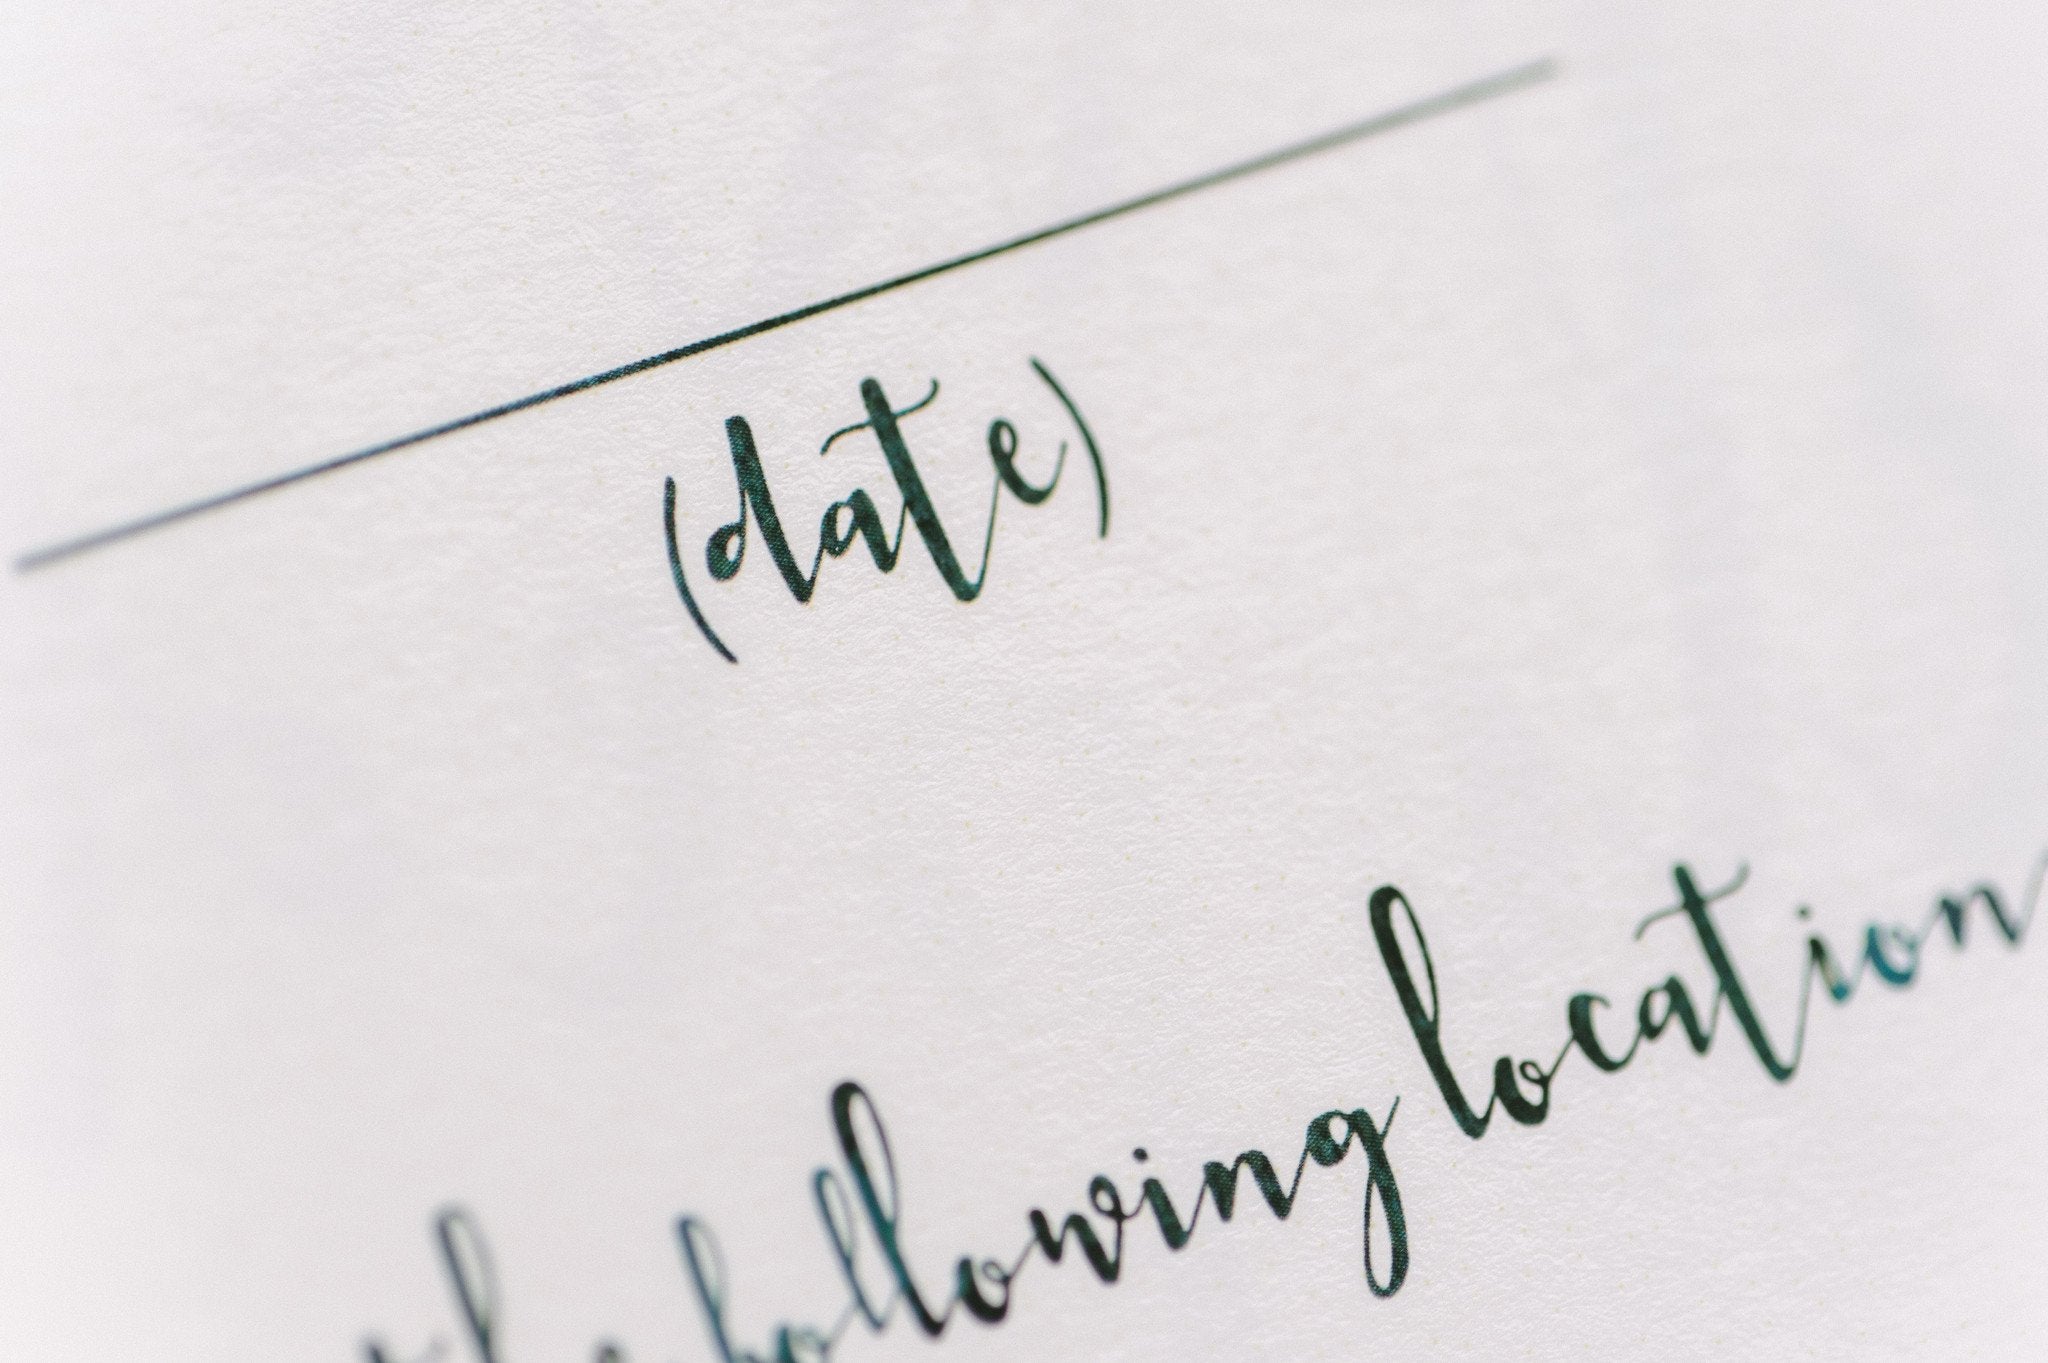 (date)
the following location